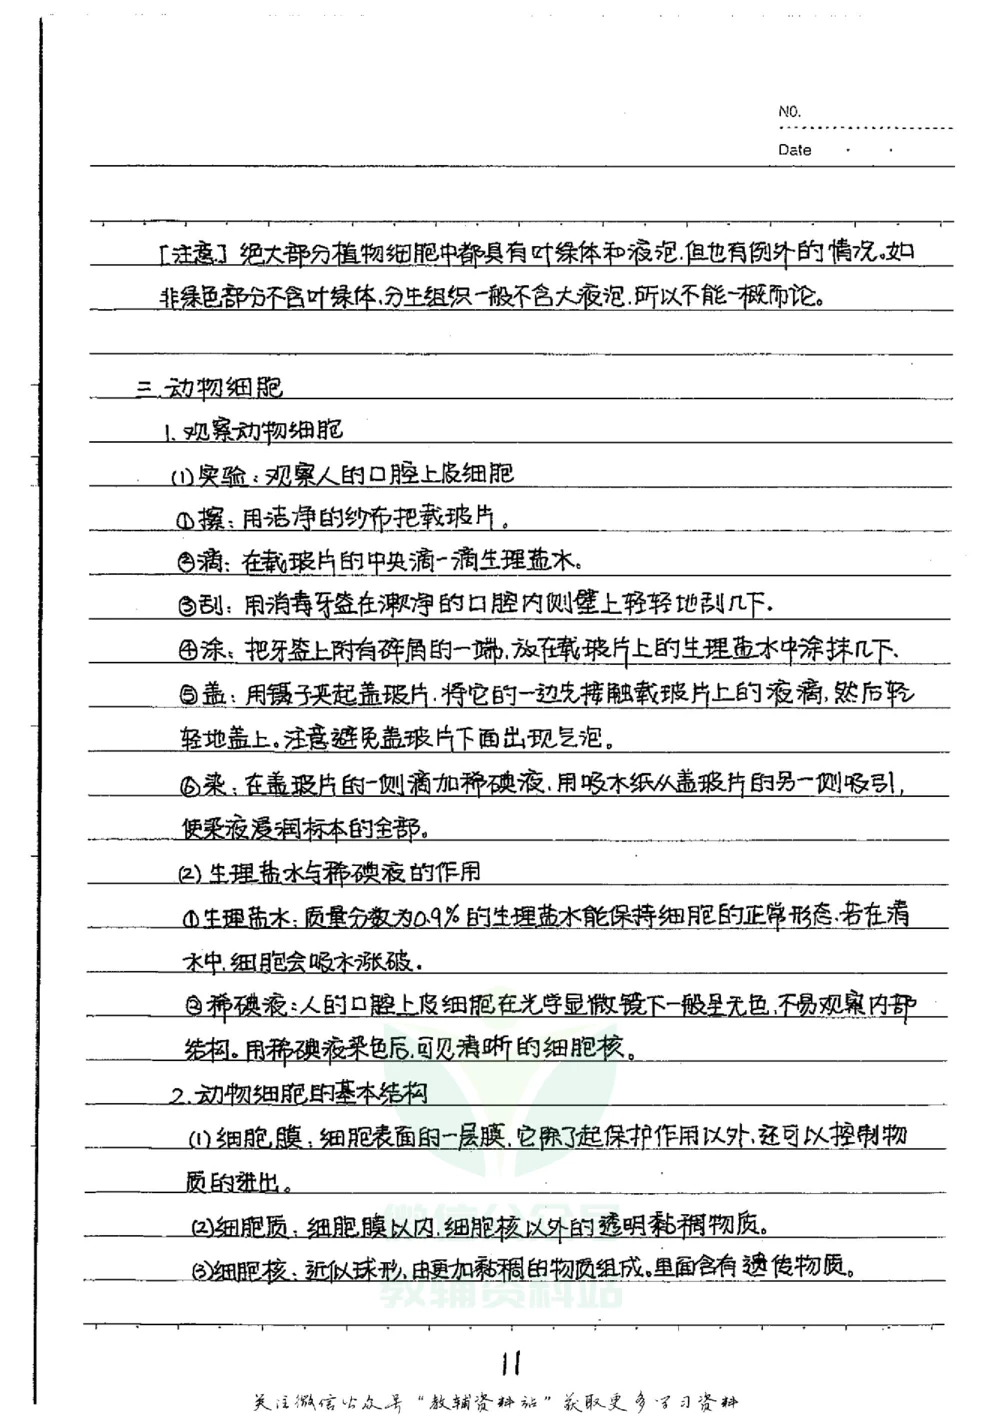 NO.
Date
[注意] 绝大部分植物细胞中都具有叶绿体和液泡,但也有例外的情况。如
非绿色部分不含叶绿体,分生组织一般不含大液泡,所以不能一概而论。
三.动物细胞
1.观察动物细胞
(1)实验:观察人的口腔上皮细胞
①擦:用洁净的纱布把载玻片。
②滴:在载玻片的中央滴一滴生理盐水。
③刮:用消毒牙签在漱净的口腔内侧壁上轻轻地刮几下.
④涂:把牙签上附有碎屑的一端,放在载玻片上的生理盐水中涂抹几下、
⑤盖:用镊子夹起盖玻片,将它的一边先接触载玻片上的液滴,然后轻
轻地盖上。注意避免盖玻片下面出现气泡。
⑥染:在盖玻片的一侧滴加稀碘液,用吸水纸从盖玻片的另一侧吸引,
使染液浸润标本的全部。
(2)生理盐水与稀碘液的作用
①生理盐水:质量分数为0.9%的生理盐水能保持细胞的正常形态.若在清
水中,细胞会吸水涨破.
②稀碘液:人的口腔上皮细胞在光学显微镜下一般呈无色,不易观察内部
结构。用稀碘液染色后,可见清晰的细胞核。
2.动物细胞的基本结构
(1)细胞膜:细胞表面的一层膜,它除了起保护作用以外,还可以控制物
质的进出。
(2)细胞质:细胞膜以内,细胞核以外的透明黏稠物质。
(3)细胞核:近似球形,由更加黏稠的物质组成。里面含有遗传物质。
微信公众号
教辅资料站
11
关注微信公众号“教辅资料站”获取更多学习资料